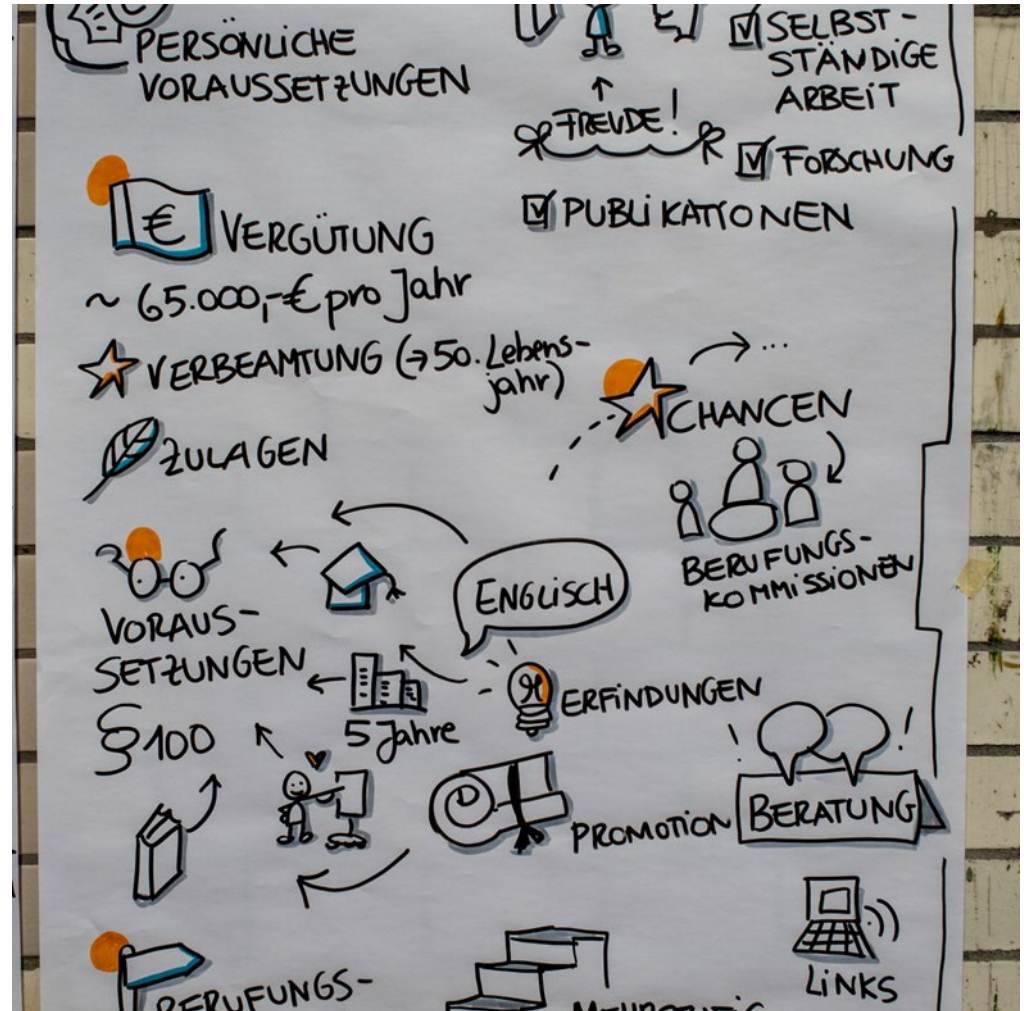 PERSÖNLICHE
VORAUSSETZUNGEN
☑ SELBST-
STÄNDIGE
ARBEIT
FREUDE!
☑ FORSCHUNG
☑ PUBLIKATIONEN
€ VERGÜTUNG
~ 65.000,-€ pro Jahr
VERBEAMTUNG (→50. Lebens-
jahr)
ZULAGEN
...
CHANCEN
BERUFUNGS-
KOMMISSIONEN
ENGLISCH
VORAUS-
SETZUNGEN
§100
5 Jahre
ERFINDUNGEN
PROMOTION
BERATUNG
LINKS
BERUFUNGS-